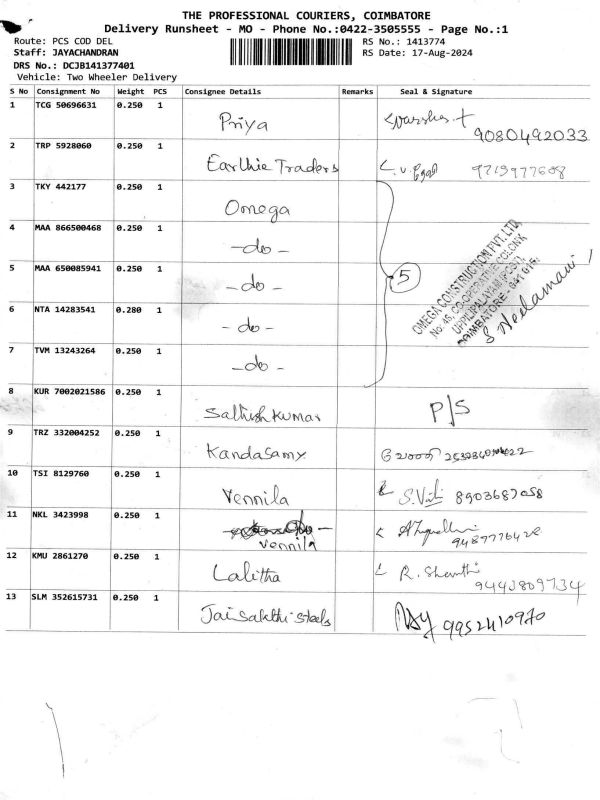 THE PROFESSIONAL COURIERS, COIMBATORE
Delivery Runsheet - MO - Phone No.:0422-3505555 - Page No.:1
Route: PCS COD DEL RS No.: 1413774
Staff: JAYACHANDRAN RS Date: 17-Aug-2024
DRS No.: DCJB141377401
Vehicle: Two Wheeler Delivery
S No Consignment No Weight PCS Consignee Details Remarks Seal & Signature
1 TCG 50696631 0.250 1 Priya 9080492033
2 TRP 5928060 0.250 1 Earthie Traders
3 TKY 442177 0.250 1 Omega
4 MAA 866500468 0.250 1 -do-
5 MAA 650085941 0.250 1 -do- 5
OMEGA CONSTRUCTION PVT. LTD.
No: 45, CO-OPERATIVE COLONY,
UPPILIPALAYAM (POST),
COIMBATORE - 641 015.
S Neelamani
6 NTA 14283541 0.280 1 -do-
7 TVM 13243264 0.250 1 -do-
8 KUR 7002021586 0.250 1 Sathish kumar P/S
9 TRZ 332004252 0.250 1 Kandasamy
10 TSI 8129760 0.250 1 Vennila 8903687058
11 NKL 3423998 0.250 1 Vennila 9487776428
12 KMU 2861270 0.250 1 Lalitha R. Shanthi 9443809734
13 SLM 352615731 0.250 1 Jai Sakthi steels 9952410970